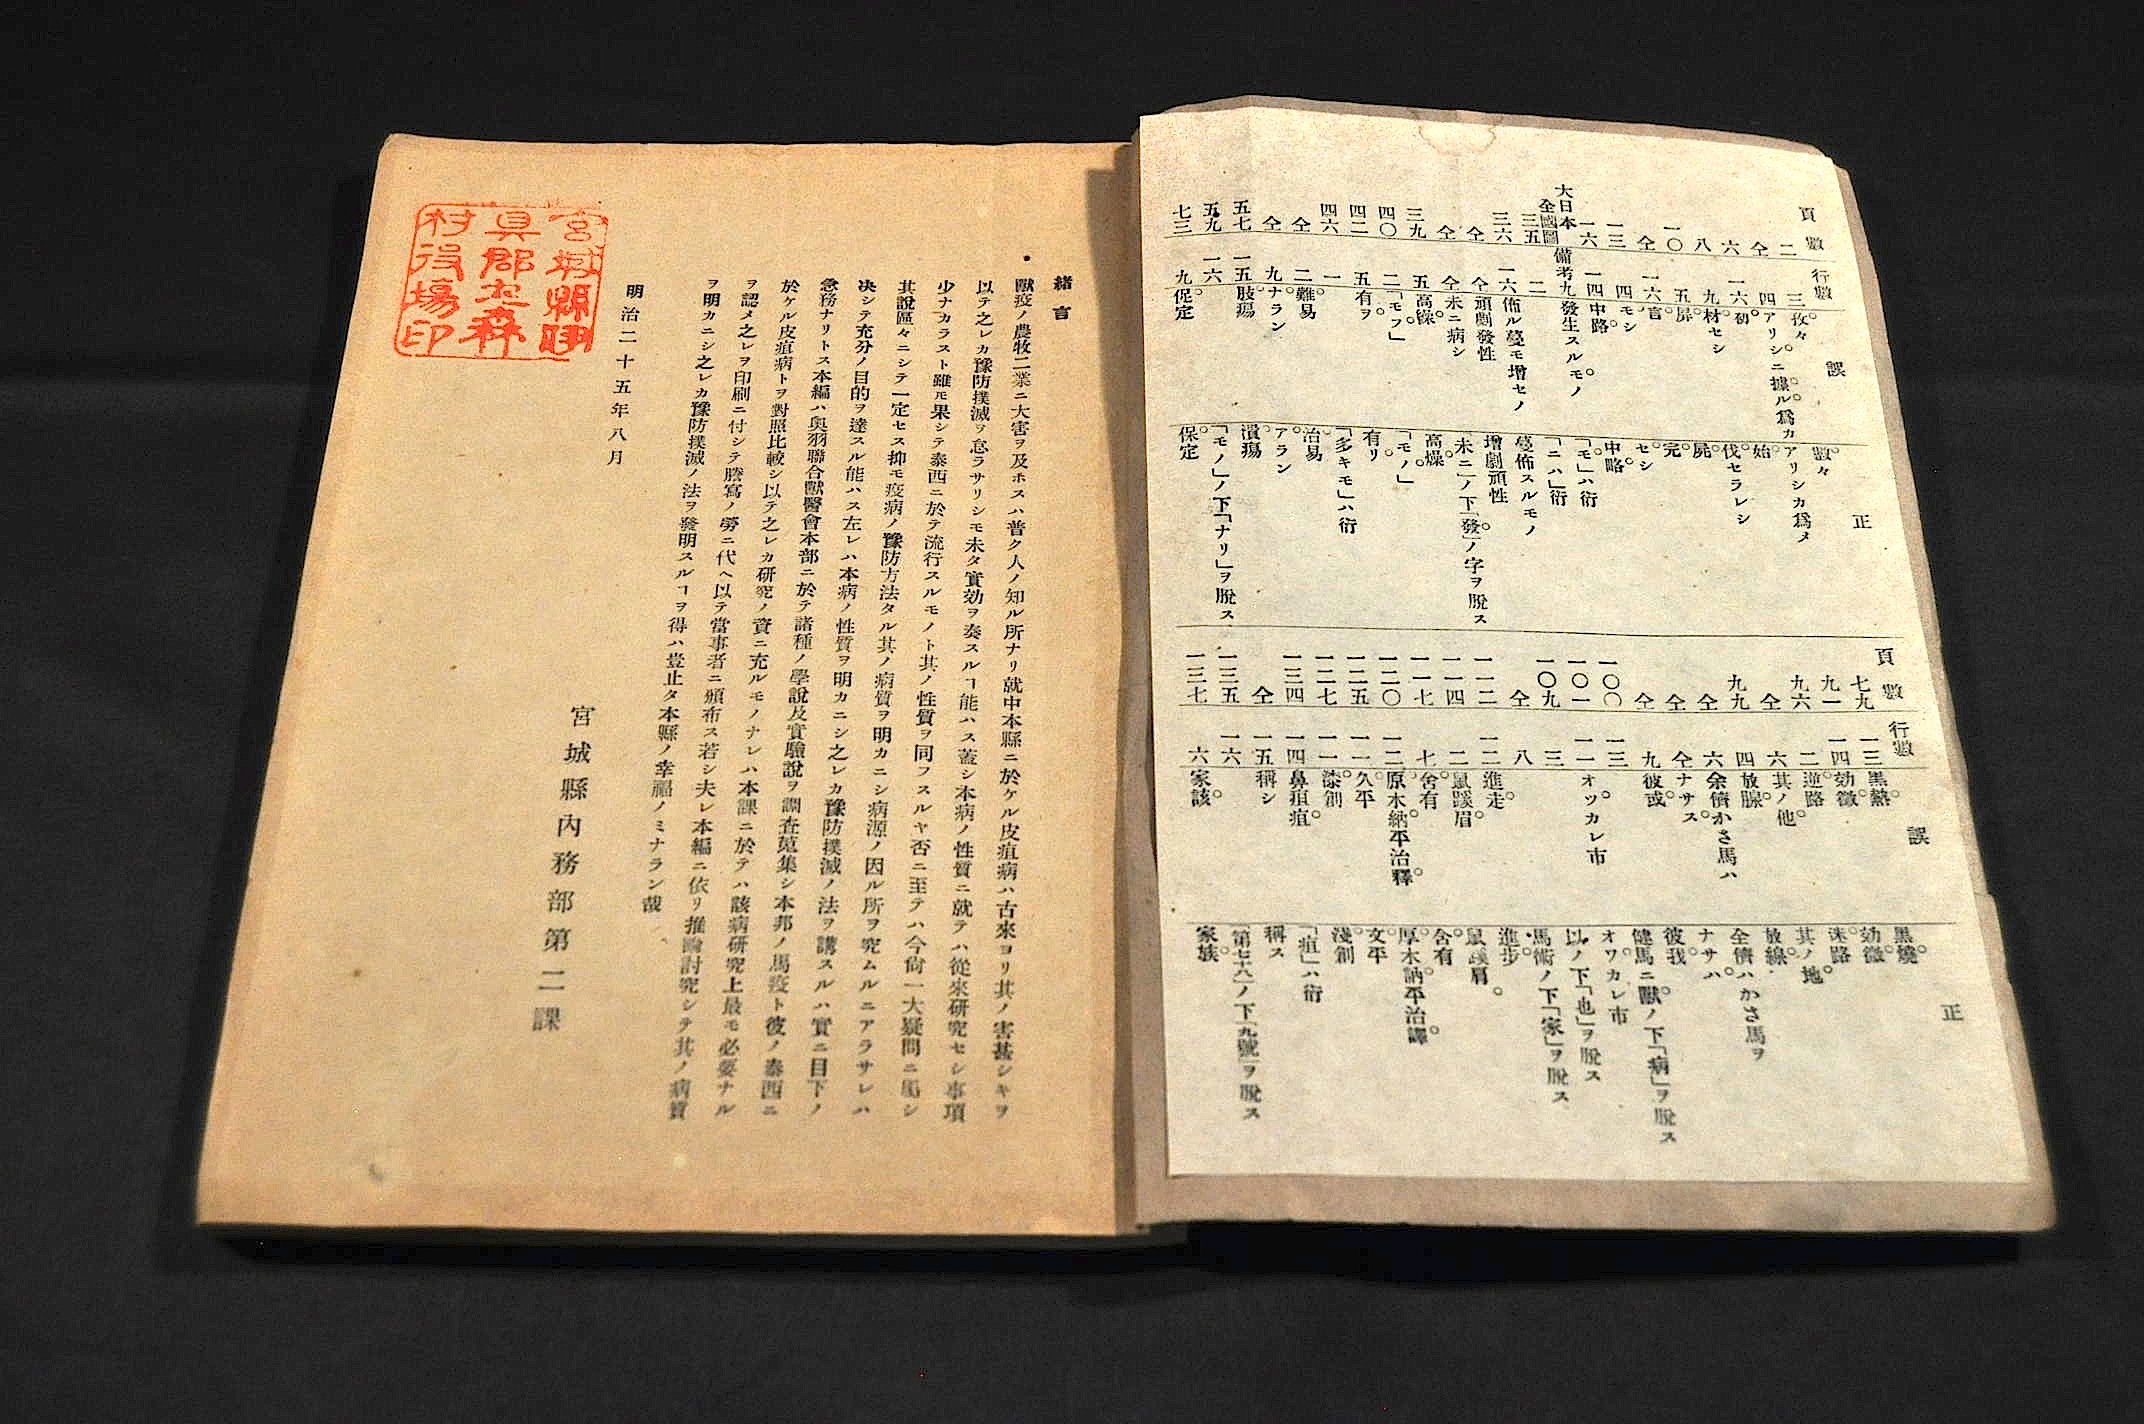 頁數 行數 誤 正
二 三 孜々 數々
仝 四 アリシニ據ル爲カ アリシカ爲メ
六 一六 刱 始
八 九 材セシ 伐セラレシ
一〇 五 屏 屍
仝 一六 言 完
一三 四 モシ セシ
一六 一四 中路 中略
大日本全國圖 備考九 發生スルモノ 「モ」ハ衍
三五 二 「ニハ」衍
三六 一六 佈ル蔓モ增セノ 蔓佈スルモノ
仝 仝 頑劇發性 增劇頑性
仝 仝 未ニ病シ 未ニ」ノ下「發」ノ字ヲ脫ス
三九 五 高繰 高燥
四〇 二 「モフ」 「モノ」
四二 五 有ヲ 有リ
四六 一 「多キモ」ハ衍
仝 二 難易 治易
仝 九 ナラン アラン
五七 一五 肢瘍 潰瘍
五九 一六 「モノ」ノ下「ナリ」ヲ脫ス
七三 九 促定 保定
頁數 行數 誤 正
七九 一三 黑熱 黑燒
九一 一四 効黴 効徵
九六 二 逆路 迷路
仝 六 其ノ他 其ノ地
九九 四 放腺 放線
仝 六 余儕かさ馬ハ 全儕ハかさ馬ヲ
仝 仝 ナサス ナサハ
仝 九 彼或 彼我
一〇〇 一三 健馬ニ獸ノ下「病」ヲ脫ス
一〇一 一一 オツカレ市 オワカレ市
一〇九 三 以ノ下「也」ヲ脫ス
仝 八 馬術ノ下「家」ヲ脫ス
一一二 一二 進走 進步
一一四 二 鼠蹊眉 鼠蹊肩
一一七 七 舍有 含有
一二〇 一二 原木納平治釋 厚木訥平治譯
一二五 一一 久平 文平
一二七 一一 漆創 淺創
一三四 一四 鼻疽疽 「疽」ハ衍
仝 一五 稱シ 稱ス
一三五 一六 第七十八ノ下「九號」ヲ脫ス
一三七 六 家該 家族
緒言
獸疫ノ農牧二業ニ大害ヲ及ホスハ普ク人ノ知ル所ナリ就中本縣ニ於ケル皮疽病ハ古來ヨリ其ノ害甚シキヲ
以テ之レカ豫防撲滅ヲ怠ラサリシモ未タ實効ヲ奏スルヿ能ハス蓋シ本病ノ性質ニ就テハ從來研究セシ事項
少ナカラスト雖モ果シテ泰西ニ於テ流行スルモノト其ノ性質ヲ同フスルヤ否ニ至テハ今尙一大疑問ニ屬シ
其說區々ニシテ一定セス抑モ疫病ノ豫防方法タル其ノ病質ヲ明カニシ病源ノ因ル所ヲ究ムルニアラサレハ
决シテ充分ノ目的ヲ達スル能ハス左レハ本病ノ性質ヲ明カニシ之レカ豫防撲滅ノ法ヲ講スルハ實ニ目下ノ
急務ナリトス本編ハ奥羽聯合獸醫會本部ニ於テ諸種ノ學說及實驗說ヲ調査蒐集シ本邦ノ馬疫ト彼ノ泰西ニ
於ケル皮疽病トヲ對照比較シ以テ之レカ研究ノ資ニ充ルモノナレハ本課ニ於テハ該病研究上最モ必要ナル
ヲ認メ之レヲ印刷ニ付シテ謄寫ノ勞ニ代ヘ以テ當事者ニ頒布ス若シ夫レ本編ニ依リ推論討究シテ其ノ病質
ヲ明カニシ之レカ豫防撲滅ノ法ヲ發明スルヿヲ得ハ豈止タ本縣ノ幸福ノミナラン哉
明治二十五年八月
宮城縣內務部第二課
宮城縣
具郡
森
村役場印